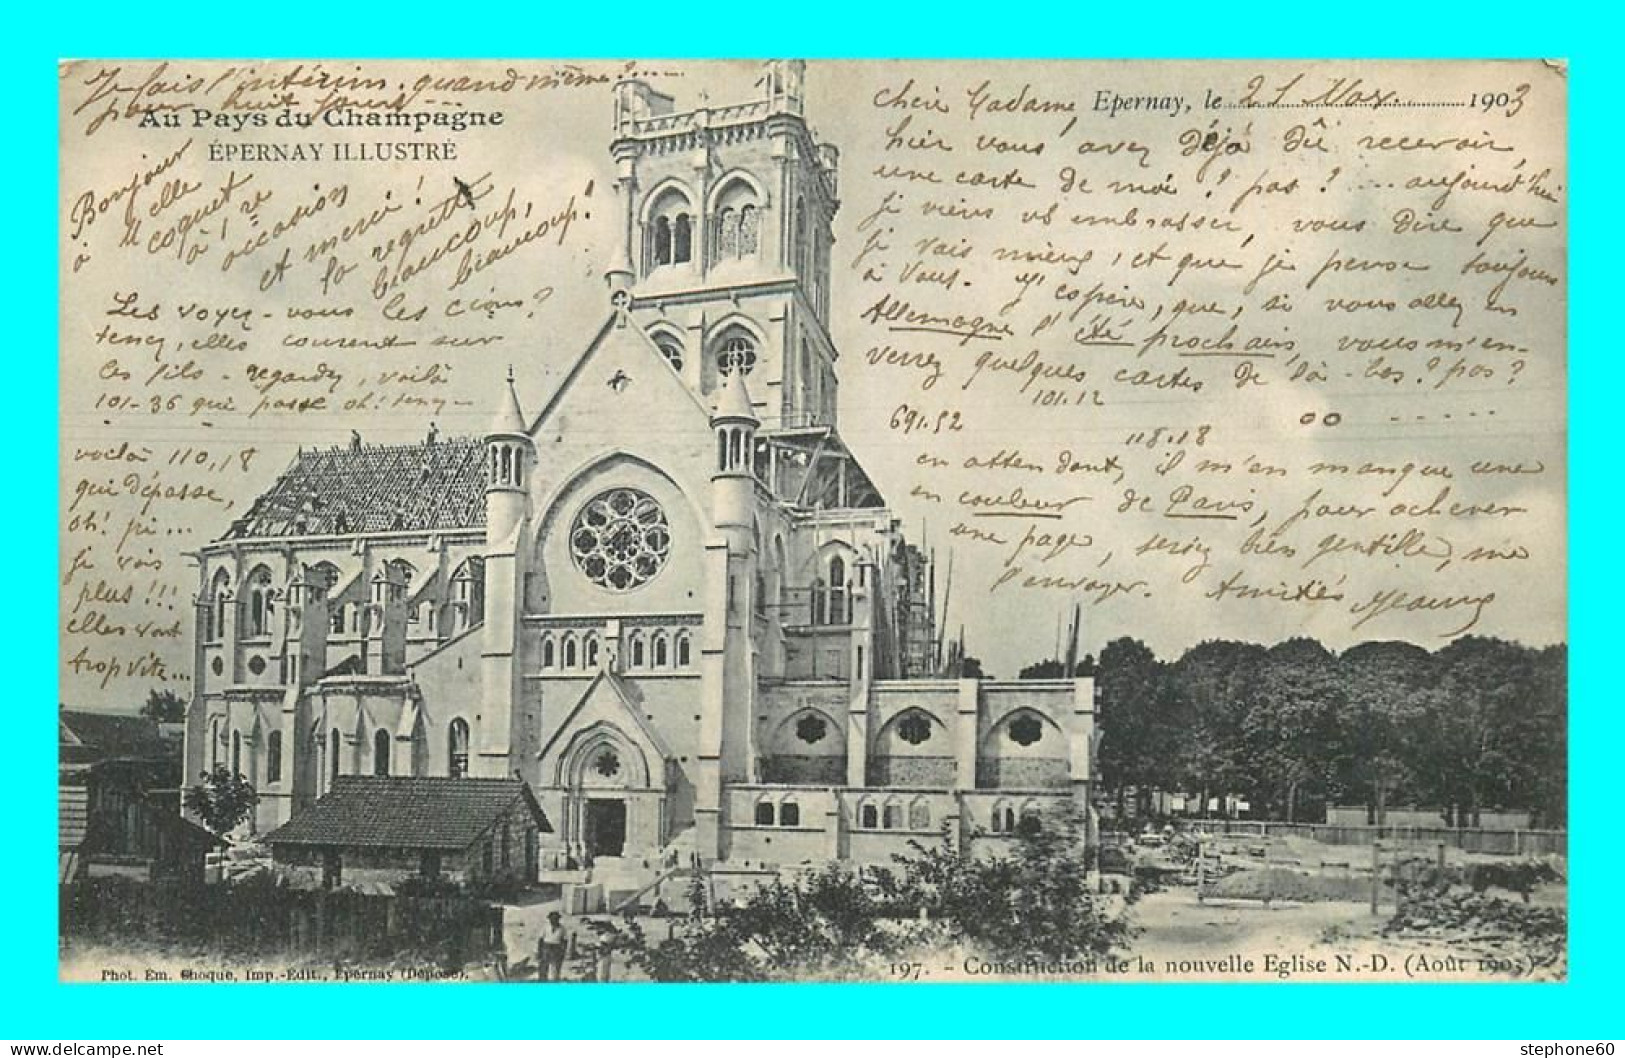 Je fais l'intérim, quand même?....
pour huit jours ---
Au Pays du Champagne
ÉPERNAY ILLUSTRÉ
Bonjour
à elle
coquet
à 1re
occasion
et merci!
la regrette
beaucoup,
beaucoup!
Les voyez-vous les
tenez, elles courent sur
les fils - regardez, voilà
101-36 qui passe oh! tenez -
voilà 110,18
qui dépasse,
oh! pi...
je vois
plus!!!
elles vont
trop vite...
Epernay, le 21 1903
chère Madame,
hier vous avez déjà dû recevoir
une carte de moi? pas? ... aujourd'hui
je viens vs embrasser, vous dire que
je vais mieux, et que je pense toujours
à vous. J'espère, que, si vous allez en
Allemagne l'été prochain, vous m'en-
verrez quelques cartes de là-bas? pas?
101.12
691.52
118.18
en attendant, il m'en manque une
en couleur de Paris, pour achever
une page, seriez bien gentille, me
l'envoyer. Amitiés
Phot. Em. Choque, Imp.-Edit., Epernay (Déposé).
197. - Construction de la nouvelle Eglise N.-D. (Août 1903)
www.delcampe.net
stephone60